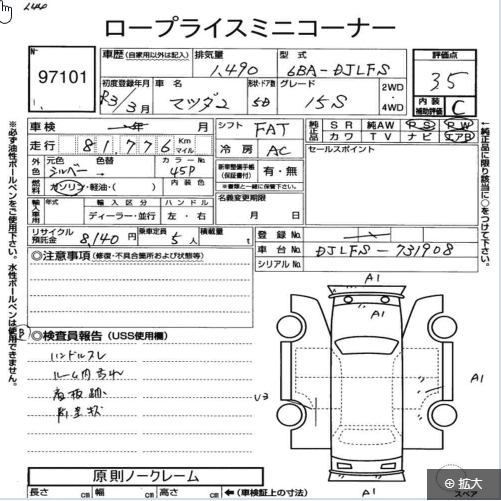 ロープライスミニコーナー
No.
97101
車歴(自家用以外は記入)
排気量
1,490
型式
6BA-DJLFS
評価点
3.5
初度登録年月
R3/3月
車名
マツダ2
形状・ドア数
5D
グレード
15S
2WD
・
4WD
内装
補助評価
C
車検
年 月
シフト
FAT
純正品
SR 純AW PS PW
カワ TV ナビ エアB
走行
81776
Km
マイル
冷房
AC
セールスポイント
外色
元色 色替
シルバー
カラーNo.
45P
新車整備手帳
(保証書付)
有・無
※書類と一緒に保管下さい。
燃料
ガソリン・軽油・( )
内装色
輸入車用
年式
輸入区分
ディーラー・並行
ハンドル
左・右
名義変更期限
月 日
リサイクル預託金
8,140円
乗車定員
5人
積載量
t
登録No.
車台No.
DJLFS-731908
シリアルNo.
◎注意事項(修復・不具合箇所および状態等)
◎検査員報告(USS使用欄)
ハンドルスレ
ルーム内汚れ
原則ノークレーム
長さ cm 幅 cm 高さ cm ←(車検証上の寸法)
A1
A1
A1
A1
U3
B
スペア
拡大
※必ず油性ボールペンをご使用下さい。水性ボールペンは使用できません。
←純正品に限り該当に○をつけて下さい。